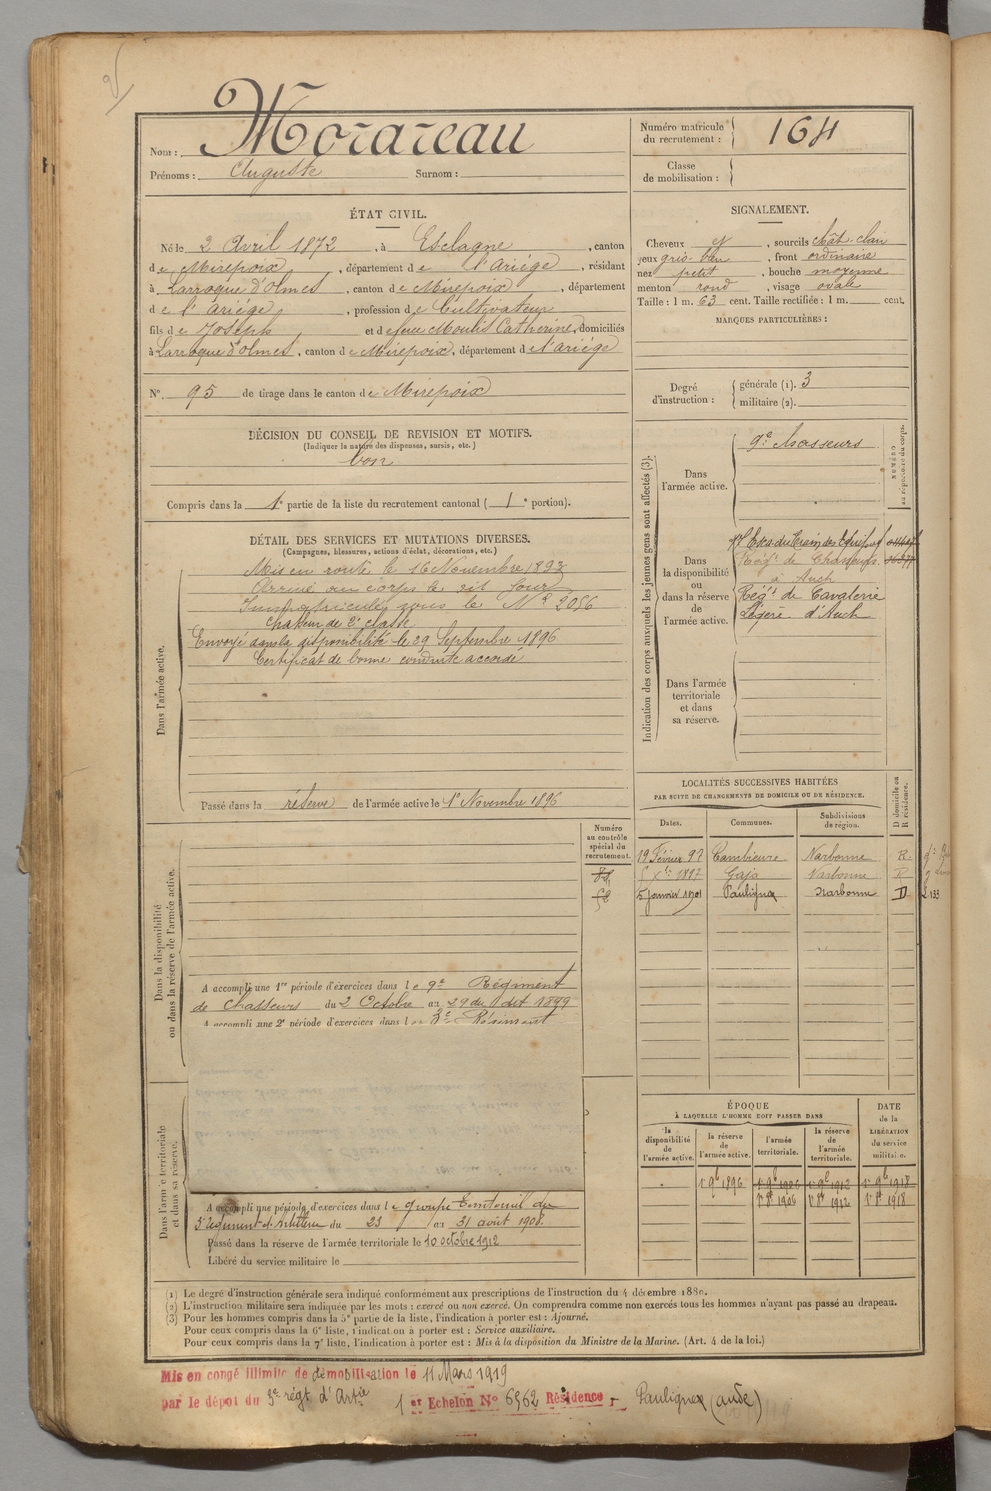 Nom : Morareau
Prénoms : Auguste Surnom :
Numéro matricule du recrutement : 164
Classe de mobilisation :
ÉTAT CIVIL.
Né le 2 Avril 1872, à Esclagne, canton
de Mirepoix, département de l'Ariége, résidant
à Larroque d'Olmes, canton de Mirepoix, département
de l'Ariége, profession de Cultivateur
fils de Joseph et de feue Moulis Catherine, domiciliés
à Larroque d'Olmes, canton de Mirepoix, département de l'Ariége
N° 95 de tirage dans le canton de Mirepoix
SIGNALEMENT.
Cheveux et, sourcils chât. clair
yeux gris-bleu, front ordinaire
nez petit, bouche moyenne
menton rond, visage ovale
Taille : 1 m. 63 cent. Taille rectifiée : 1 m. cent.
MARQUES PARTICULIÈRES :
Degré d'instruction : générale (1). 3
militaire (2).
DÉCISION DU CONSEIL DE REVISION ET MOTIFS.
(Indiquer la nature des dispenses, sursis, etc.)
bon
Compris dans la 1e partie de la liste du recrutement cantonal (1e portion).
DÉTAIL DES SERVICES ET MUTATIONS DIVERSES.
(Campagnes, blessures, actions d'éclat, décorations, etc.)
Dans l'armée active.
Mis en route le 16 Novembre 1893
Arrivé au corps le dit jour
Immatriculé sous le N° 2056
Chasseur de 2e classe
Envoyé dans la disponibilité le 29 Septembre 1896
Certificat de bonne conduite accordé
Passé dans la réserve de l'armée active le 1er Novembre 1896
Indication des corps auxquels les jeunes gens sont affectés (3).
NUMÉRO au répertoire du corps.
Dans l'armée active.
9e Chasseurs
Dans la disponibilité ou dans la réserve de l'armée active.
Esc. du Train des Equip.
Régt de Chasseurs
à Auch
Régt de Cavalerie
Légère d'Auch
Dans l'armée territoriale et dans sa réserve.
LOCALITÉS SUCCESSIVES HABITÉES
PAR SUITE DE CHANGEMENTS DE DOMICILE OU DE RÉSIDENCE.
Dates. Communes. Subdivisions de région. D domicile ou R résidence.
19 Février 97 Cambieure Narbonne R.
1897 Gaja Narbonne R
5 Janvier 1901 Pauligne Narbonne D
Numéro au contrôle spécial du recrutement.
Dans la disponibilité ou dans la réserve de l'armée active.
A accompli une 1re période d'exercices dans le 9e Régiment
de Chasseurs du 2 Octobre au 29 du dit 1899
A accompli une 2e période d'exercices dans le 3e Régiment
Dans l'armée territoriale et dans sa réserve.
A accompli une période d'exercices dans le groupe Territorial du
3e Régiment d'Artillerie du 23 au 31 août 1908.
Passé dans la réserve de l'armée territoriale le 10 octobre 1912
Libéré du service militaire le
ÉPOQUE
À LAQUELLE L'HOMME DOIT PASSER DANS
la disponibilité de l'armée active. la réserve de l'armée active. l'armée territoriale. la réserve de l'armée territoriale. DATE de la LIBÉRATION du service militaire.
1er 9bre 1896 1er 9bre 1906 1er 9bre 1912 1er 9bre 1918
1er 8bre 1906 1er 8bre 1912 1er 8bre 1918
(1) Le degré d'instruction générale sera indiqué conformément aux prescriptions de l'instruction du 4 décembre 1880.
(2) L'instruction militaire sera indiquée par les mots : exercé ou non exercé. On comprendra comme non exercés tous les hommes n'ayant pas passé au drapeau.
(3) Pour les hommes compris dans la 5e partie de la liste, l'indication à porter est : Ajourné.
Pour ceux compris dans la 6e liste, l'indication à porter est : Service auxiliaire.
Pour ceux compris dans la 7e liste, l'indication à porter est : Mis à la disposition du Ministre de la Marine. (Art. 4 de la loi.)
Mis en congé illimité de démobilisation le 11 Mars 1919
par le dépôt du 3e régt d'Artie 1er Echelon N° 6562 Résidence Pauligne (aude)